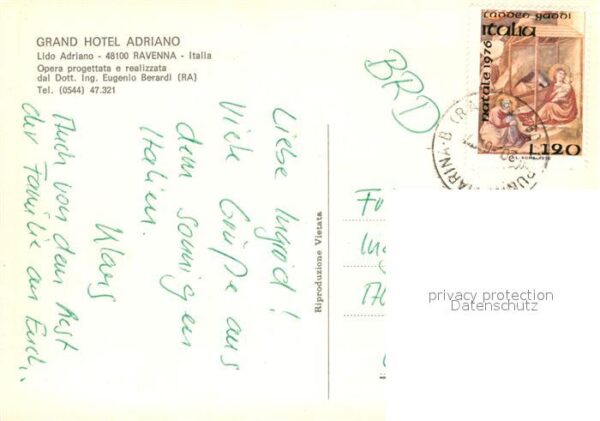 GRAND HOTEL ADRIANO
Lido Adriano - 48100 RAVENNA - Italia
Opera progettata e realizzata
dal Dott. Ing. Eugenio Berardi (RA)
Tel. (0544) 47.321
Liebe Ingrid!
Viele Grüße aus
dem sonnigen
Italien.
Klaus
Auch von dem Rest
der Familie an Euch.
Riproduzione Vietata
BRD
taddeo gaddi
italia
natale 1976
L.120
MARINA
privacy protection
Datenschutz